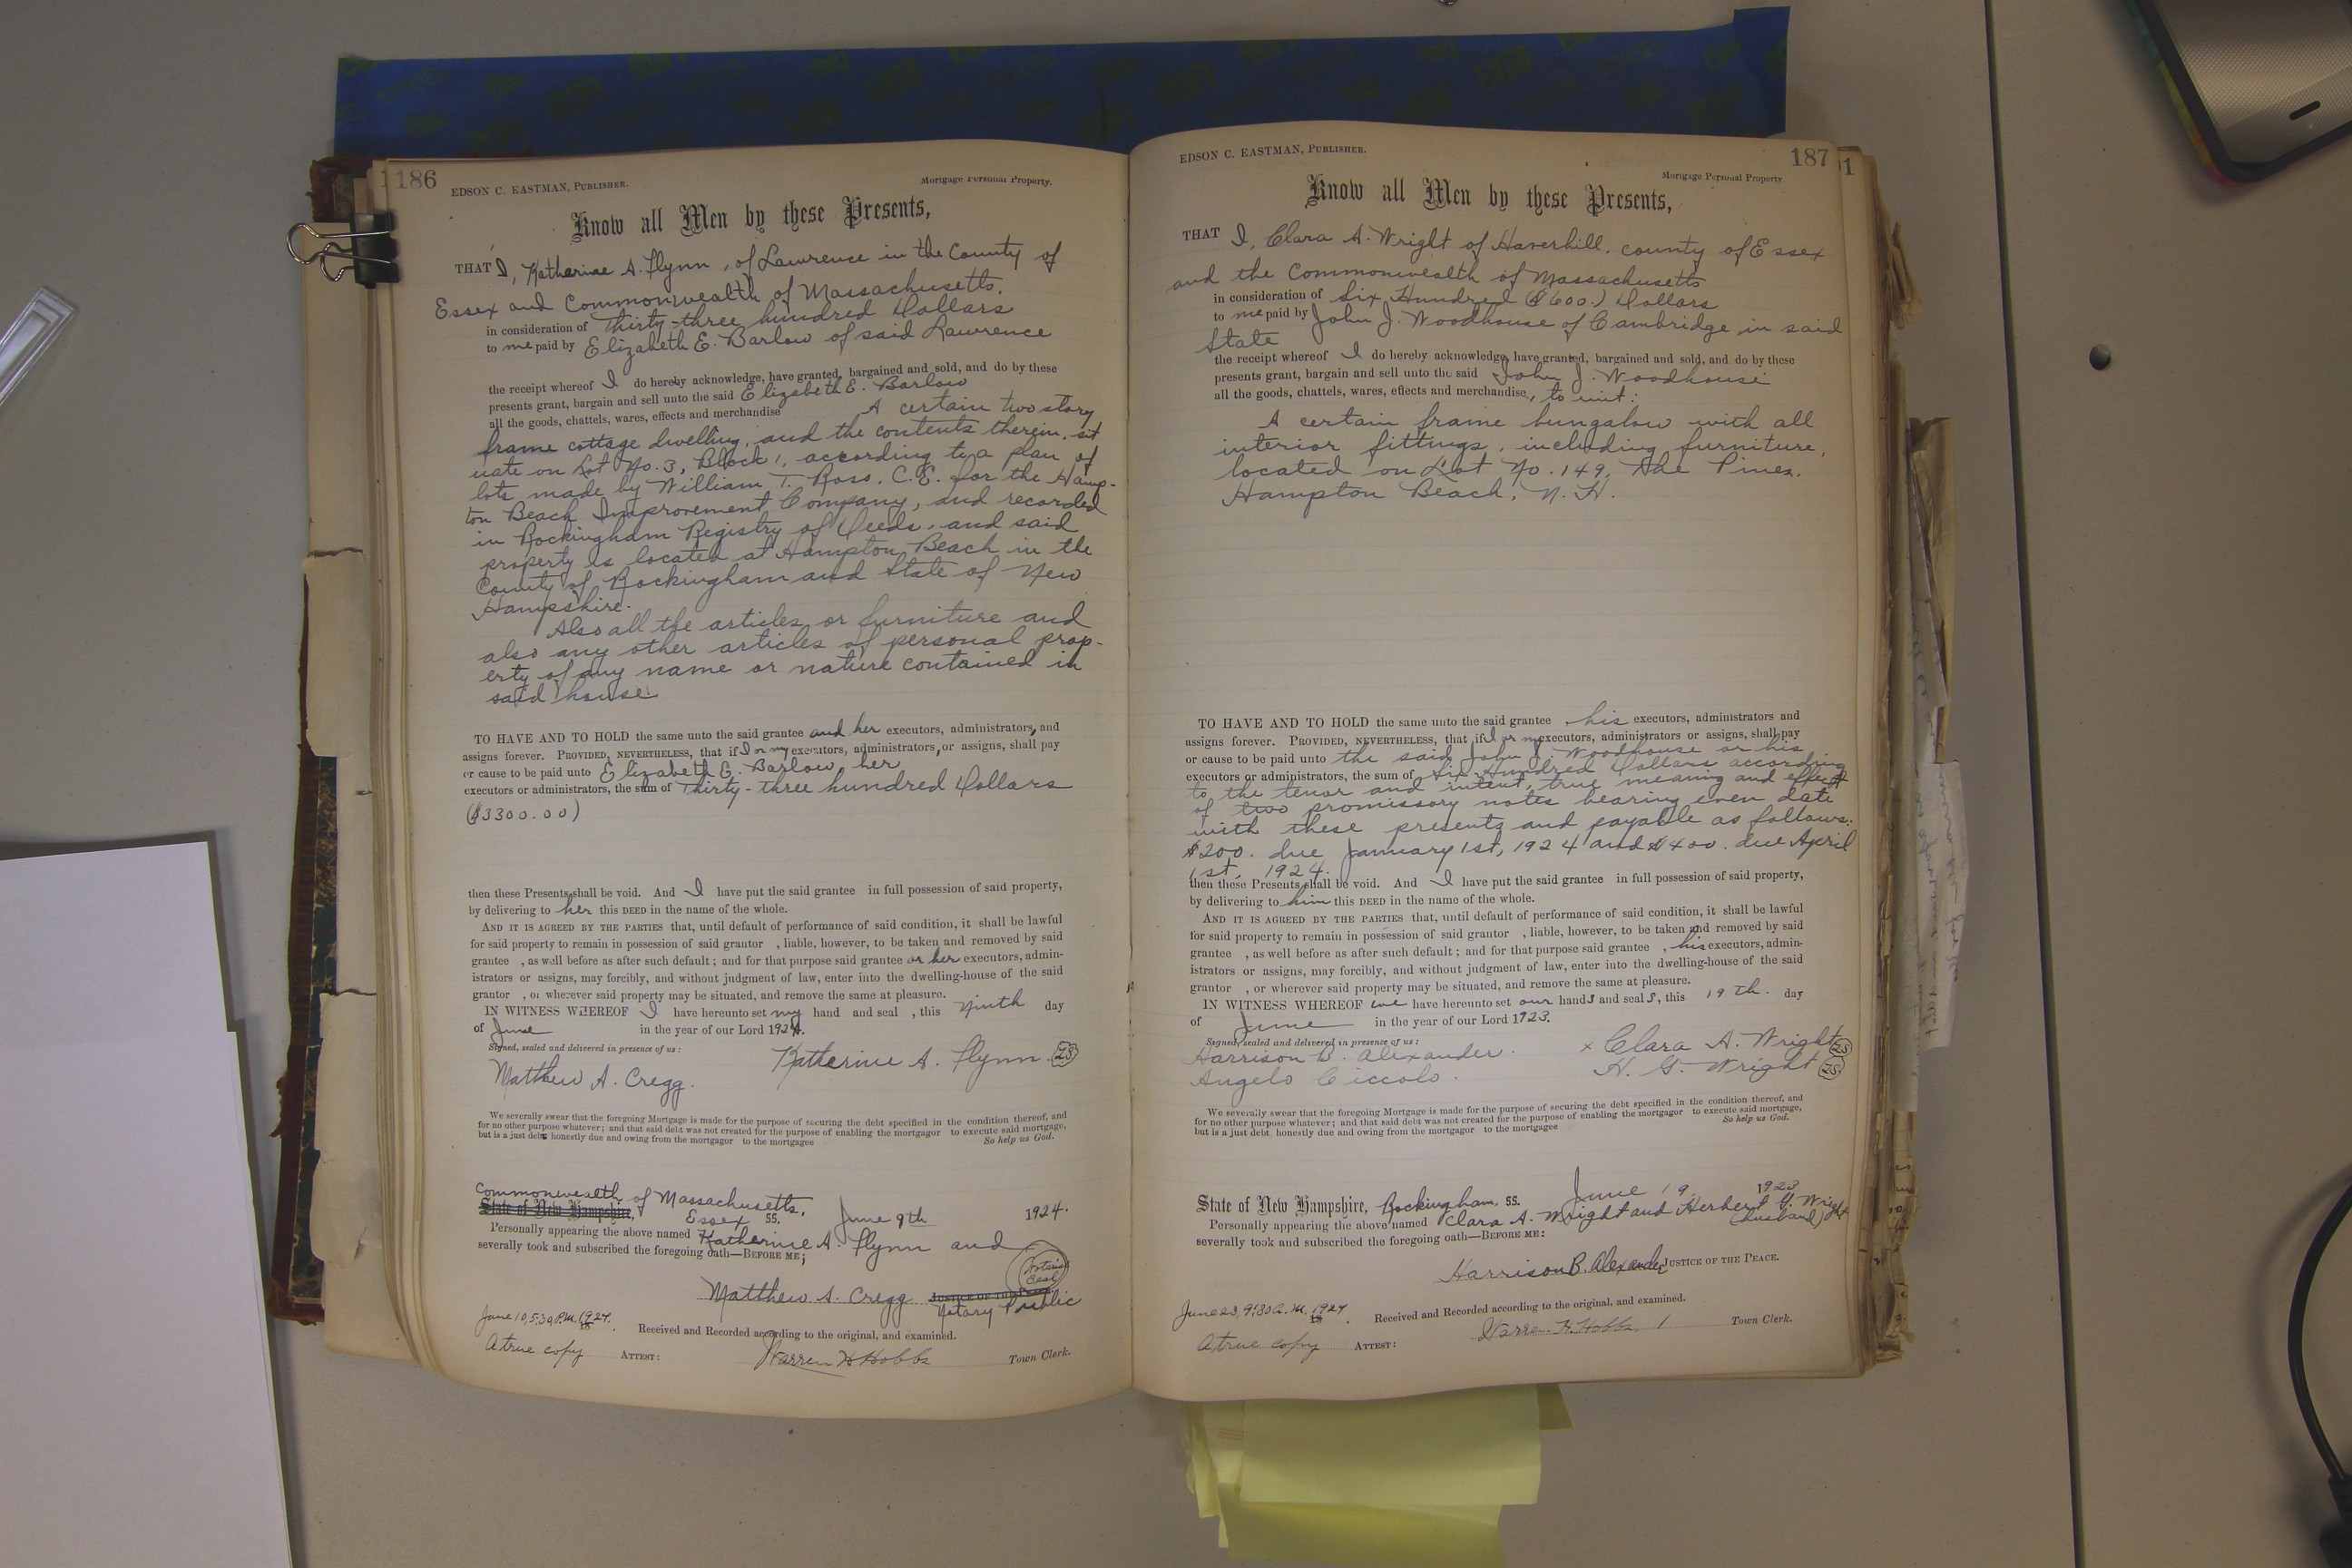 186
EDSON C. EASTMAN, PUBLISHER.
Mortgage Personal Property.
Know all Men by these Presents,
THAT I, Katherine A. Flynn, of Lawrence in the County of
Essex and Commonwealth of Massachusetts.
in consideration of Thirty-three hundred Dollars
to me paid by Elizabeth E. Barlow of said Lawrence
the receipt whereof I do hereby acknowledge, have granted, bargained and sold, and do by these
presents grant, bargain and sell unto the said Elizabeth E. Barlow
all the goods, chattels, wares, effects and merchandise A certain two story
frame cottage dwelling, and the contents therein, sit
uate on Lot No. 3, Block 1, according to a plan of
lots made by William T. Ross, C.E. for the Hamp-
ton Beach Improvement Company, and recorded
in Rockingham Registry of Deeds, and said
property is located at Hampton Beach in the
County of Rockingham and State of New
Hampshire.
Also all the articles or furniture and
also any other articles of personal prop-
erty of any name or nature contained in
said house
TO HAVE AND TO HOLD the same unto the said grantee and her executors, administrators, and
assigns forever. PROVIDED, NEVERTHELESS, that if I or my executors, administrators, or assigns, shall pay
or cause to be paid unto Elizabeth E. Barlow, her
executors or administrators, the sum of Thirty-three hundred Dollars
($3300.00)
then these Presents shall be void. And I have put the said grantee in full possession of said property,
by delivering to her this DEED in the name of the whole.
AND IT IS AGREED BY THE PARTIES that, until default of performance of said condition, it shall be lawful
for said property to remain in possession of said grantor , liable, however, to be taken and removed by said
grantee , as well before as after such default; and for that purpose said grantee or her executors, admin-
istrators or assigns, may forcibly, and without judgment of law, enter into the dwelling-house of the said
grantor , or wherever said property may be situated, and remove the same at pleasure.
IN WITNESS WHEREOF I have hereunto set my hand and seal , this Ninth day
of June in the year of our Lord 1924.
Signed, sealed and delivered in presence of us:
Katherine A. Flynn. LS
Matthew A. Cregg.
We severally swear that the foregoing Mortgage is made for the purpose of securing the debt specified in the condition thereof, and
for no other purpose whatever; and that said debt was not created for the purpose of enabling the mortgagor to execute said mortgage,
but is a just debt honestly due and owing from the mortgagor to the mortgagee So help us God.
Commonwealth of Massachusetts,
State of New Hampshire, Essex ss. June 9th 1924.
Personally appearing the above named Katherine A. Flynn and
severally took and subscribed the foregoing oath—BEFORE ME;
Notarial Seal
Matthew A. Cregg JUSTICE OF THE PEACE
Notary Public
June 10, 5:30 P.M. 1924. Received and Recorded according to the original, and examined.
A true copy ATTEST: Warren H Hobbs Town Clerk.
187
EDSON C. EASTMAN, PUBLISHER.
Mortgage Personal Property
Know all Men by these Presents,
THAT I, Clara A. Wright of Haverhill. county of Essex
and the Commonwealth of Massachusetts
in consideration of Six Hundred ($600.) Dollars
to me paid by John J. Woodhouse of Cambridge, in said
State
the receipt whereof I do hereby acknowledge, have granted, bargained and sold, and do by these
presents grant, bargain and sell unto the said John J. Woodhouse
all the goods, chattels, wares, effects and merchandise, to wit:
A certain frame bungalow with all
interior fittings, including furniture,
located on Lot No. 149, The Pines,
Hampton Beach, N.H.
TO HAVE AND TO HOLD the same unto the said grantee , his executors, administrators and
assigns forever. PROVIDED, NEVERTHELESS, that if I or my executors, administrators or assigns, shall pay
or cause to be paid unto the said John J. Woodhouse or his
executors or administrators, the sum of Six Hundred Dollars according
to the tenor and intent, true meaning and effect
of two promissory notes bearing even date
with these presents and payable as follows:
$200. due January 1st, 1924 and $400. due April
1st, 1924.
then these Presents shall be void. And I have put the said grantee in full possession of said property,
by delivering to him this DEED in the name of the whole.
AND IT IS AGREED BY THE PARTIES that, until default of performance of said condition, it shall be lawful
for said property to remain in possession of said grantor , liable, however, to be taken and removed by said
grantee , as well before as after such default; and for that purpose said grantee , his executors, admin-
istrators or assigns, may forcibly, and without judgment of law, enter into the dwelling-house of the said
grantor , or wherever said property may be situated, and remove the same at pleasure.
IN WITNESS WHEREOF we have hereunto set our hands and seals, this 19th. day
of June in the year of our Lord 1923.
Signed, sealed and delivered in presence of us:
Harrison B. Alexander. x Clara A. Wright LS
Angelo Ciccolo. H. G. Wright LS
We severally swear that the foregoing Mortgage is made for the purpose of securing the debt specified in the condition thereof, and
for no other purpose whatever; and that said debt was not created for the purpose of enabling the mortgagor to execute said mortgage,
but is a just debt honestly due and owing from the mortgagor to the mortgagee So help us God.
State of New Hampshire, Rockingham, ss. June 19, 1923
Personally appearing the above named Clara A. Wright and Herbert G. Wright
(husband)
severally took and subscribed the foregoing oath—BEFORE ME:
Harrison B. Alexander JUSTICE OF THE PEACE.
June 23, 9:30 A.M. 1924. Received and Recorded according to the original, and examined.
A true copy ATTEST: Warren H. Hobbs Town Clerk.